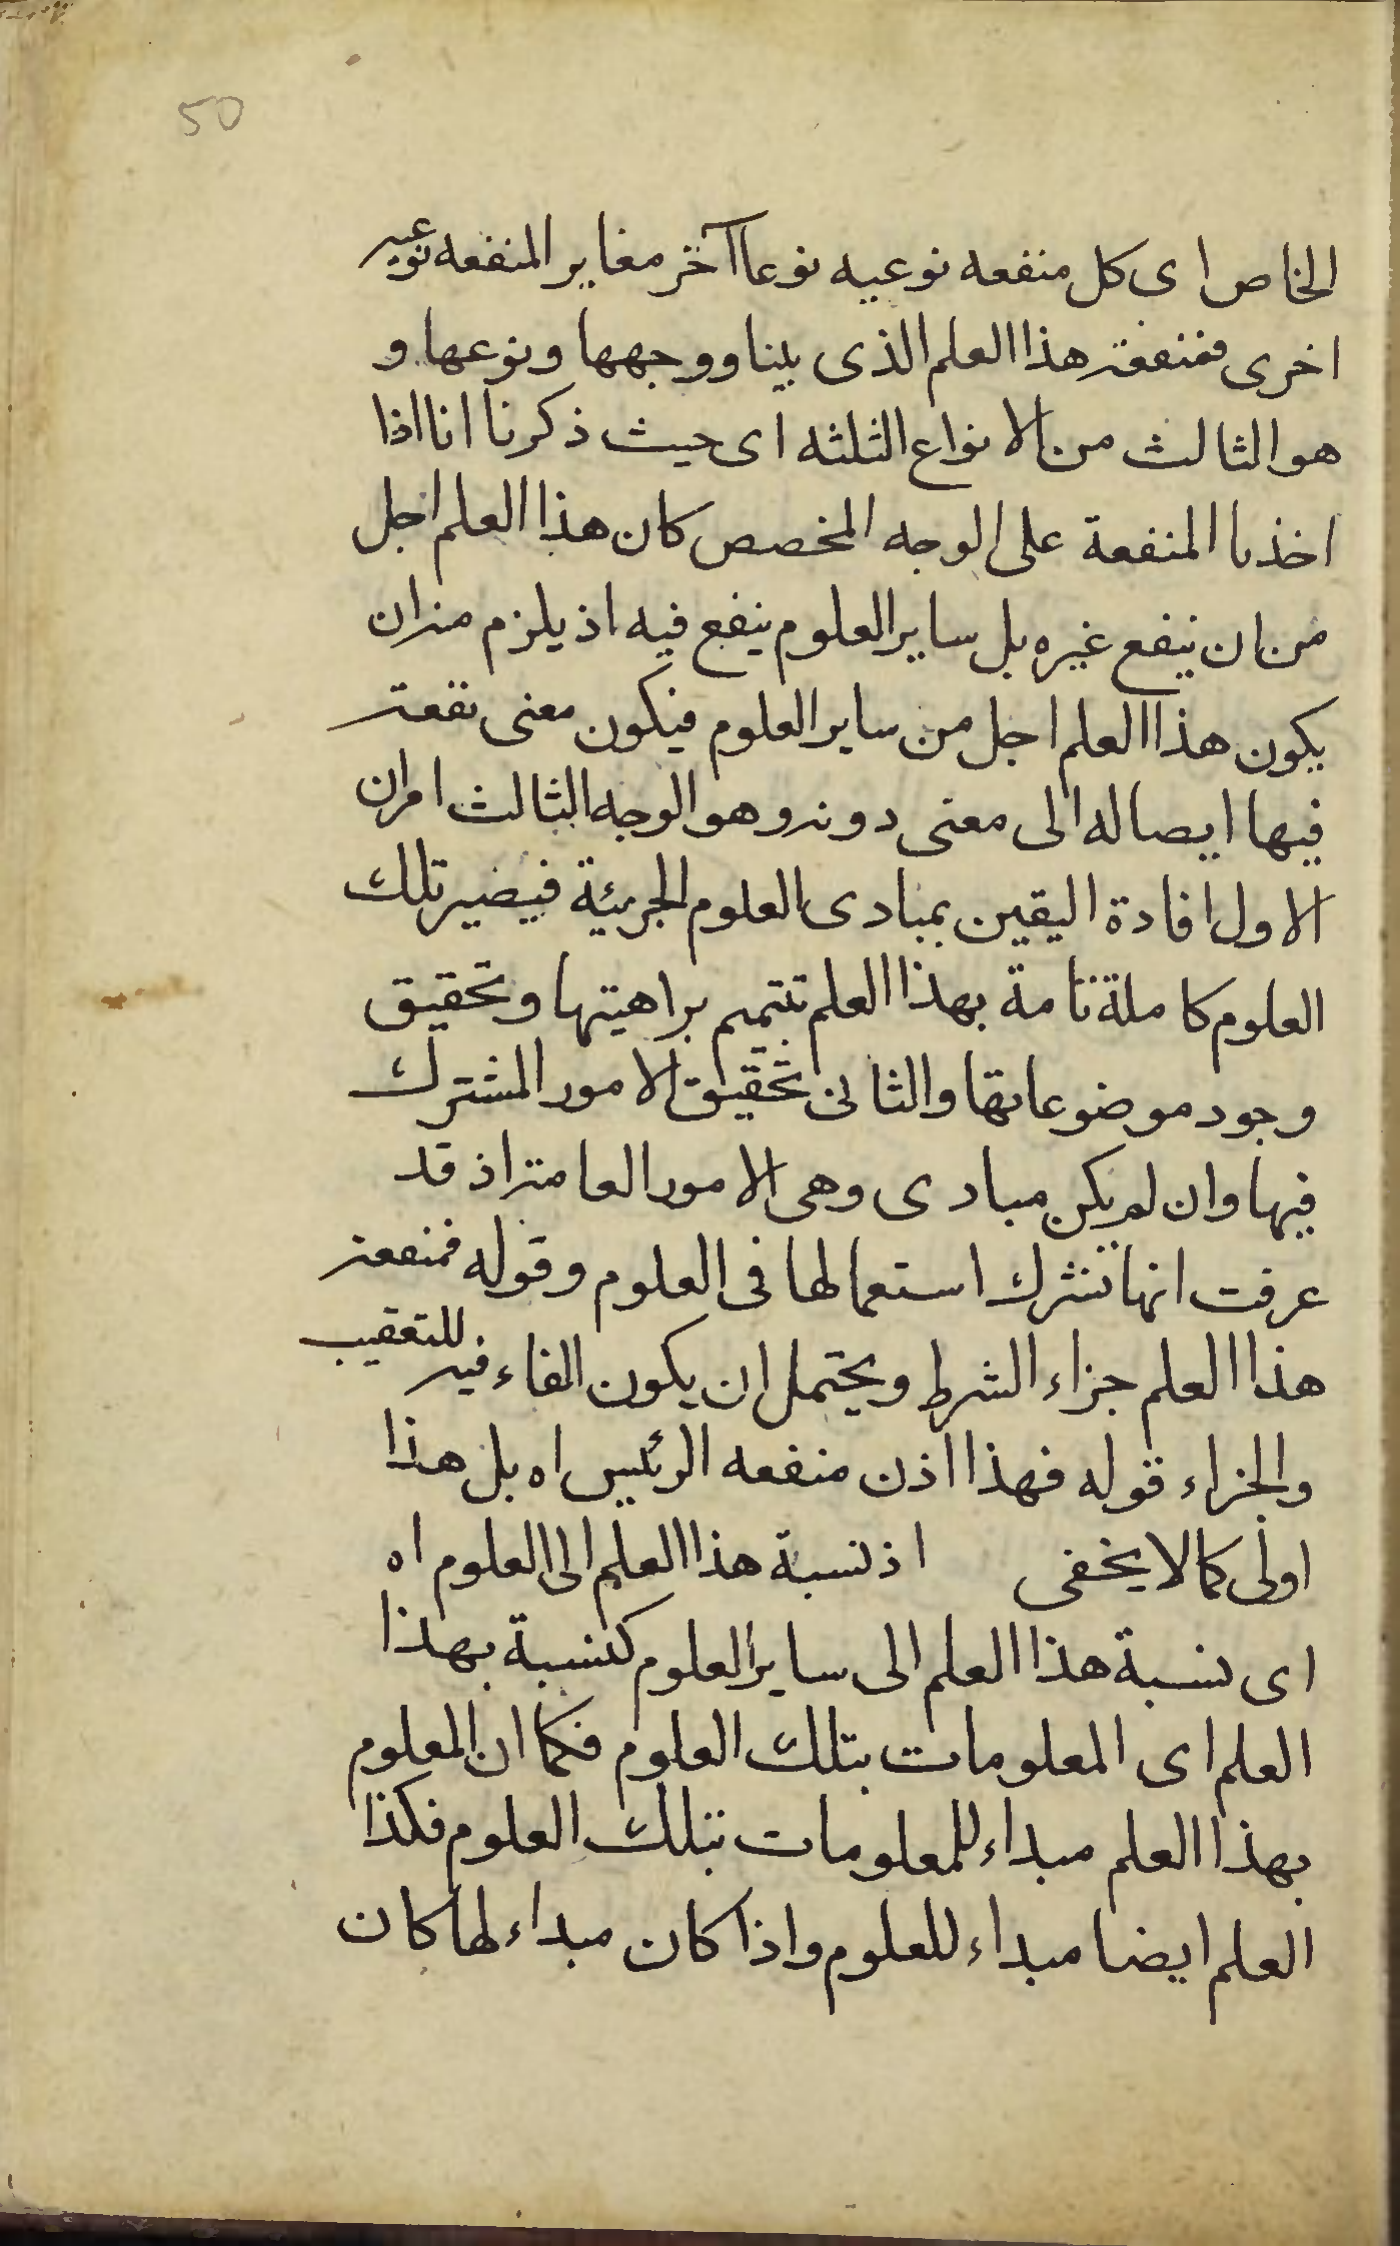 50
الخاص اى كل منفعه نوعيه نوعا آخر مغاير المنفعه نوعيه
اخرى فمنفعته هذا العلم الذى بينا ووجهها ونوعها و
هو الثالث من الانواع الثلثه اى حيث ذكرنا انا اذا
اخذنا المنفعة على الوجه المخصص كان هذا العلم اجل
من ان ينفع غيره بل ساير العلوم ينفع فيه اذ يلزم منه ان
يكون هذا العلم اجل من ساير العلوم فيكون معنى نفعته
فيها ايصاله الى معنى دونه وهو الوجه الثالث امران
الاول افادة اليقين بمبادى العلوم الجزئية فيضير تلك
العلوم كاملة تامة بهذا العلم تتميم براهيتها وتحقيق
وجود موضوعاتها والثانى تحقيق الامور المشترك
فيها وان لم يكن مبادى وهى الامور العامته اذ قد
عرفت انها تشرك استعمالها فى العلوم وقوله فمنفعته
هذا العلم جزاء الشرط ويحتمل ان يكون الفاء فيه للتعقيب
والجزاء قوله فهذا اذن منفعه الرئيس اه بل هذا
اولى كما لا يخفى اذ نسبة هذا العلم الى العلوم اه
اى نسبة هذا العلم الى ساير العلوم كنسبة بهذا
العلم اى المعلومات بتلك العلوم فكما ان المعلوم
بهذا العلم مبداء للمعلومات بتلك العلوم فكذا
العلم ايضا مبداء للعلوم واذا كان مبداء لها كان